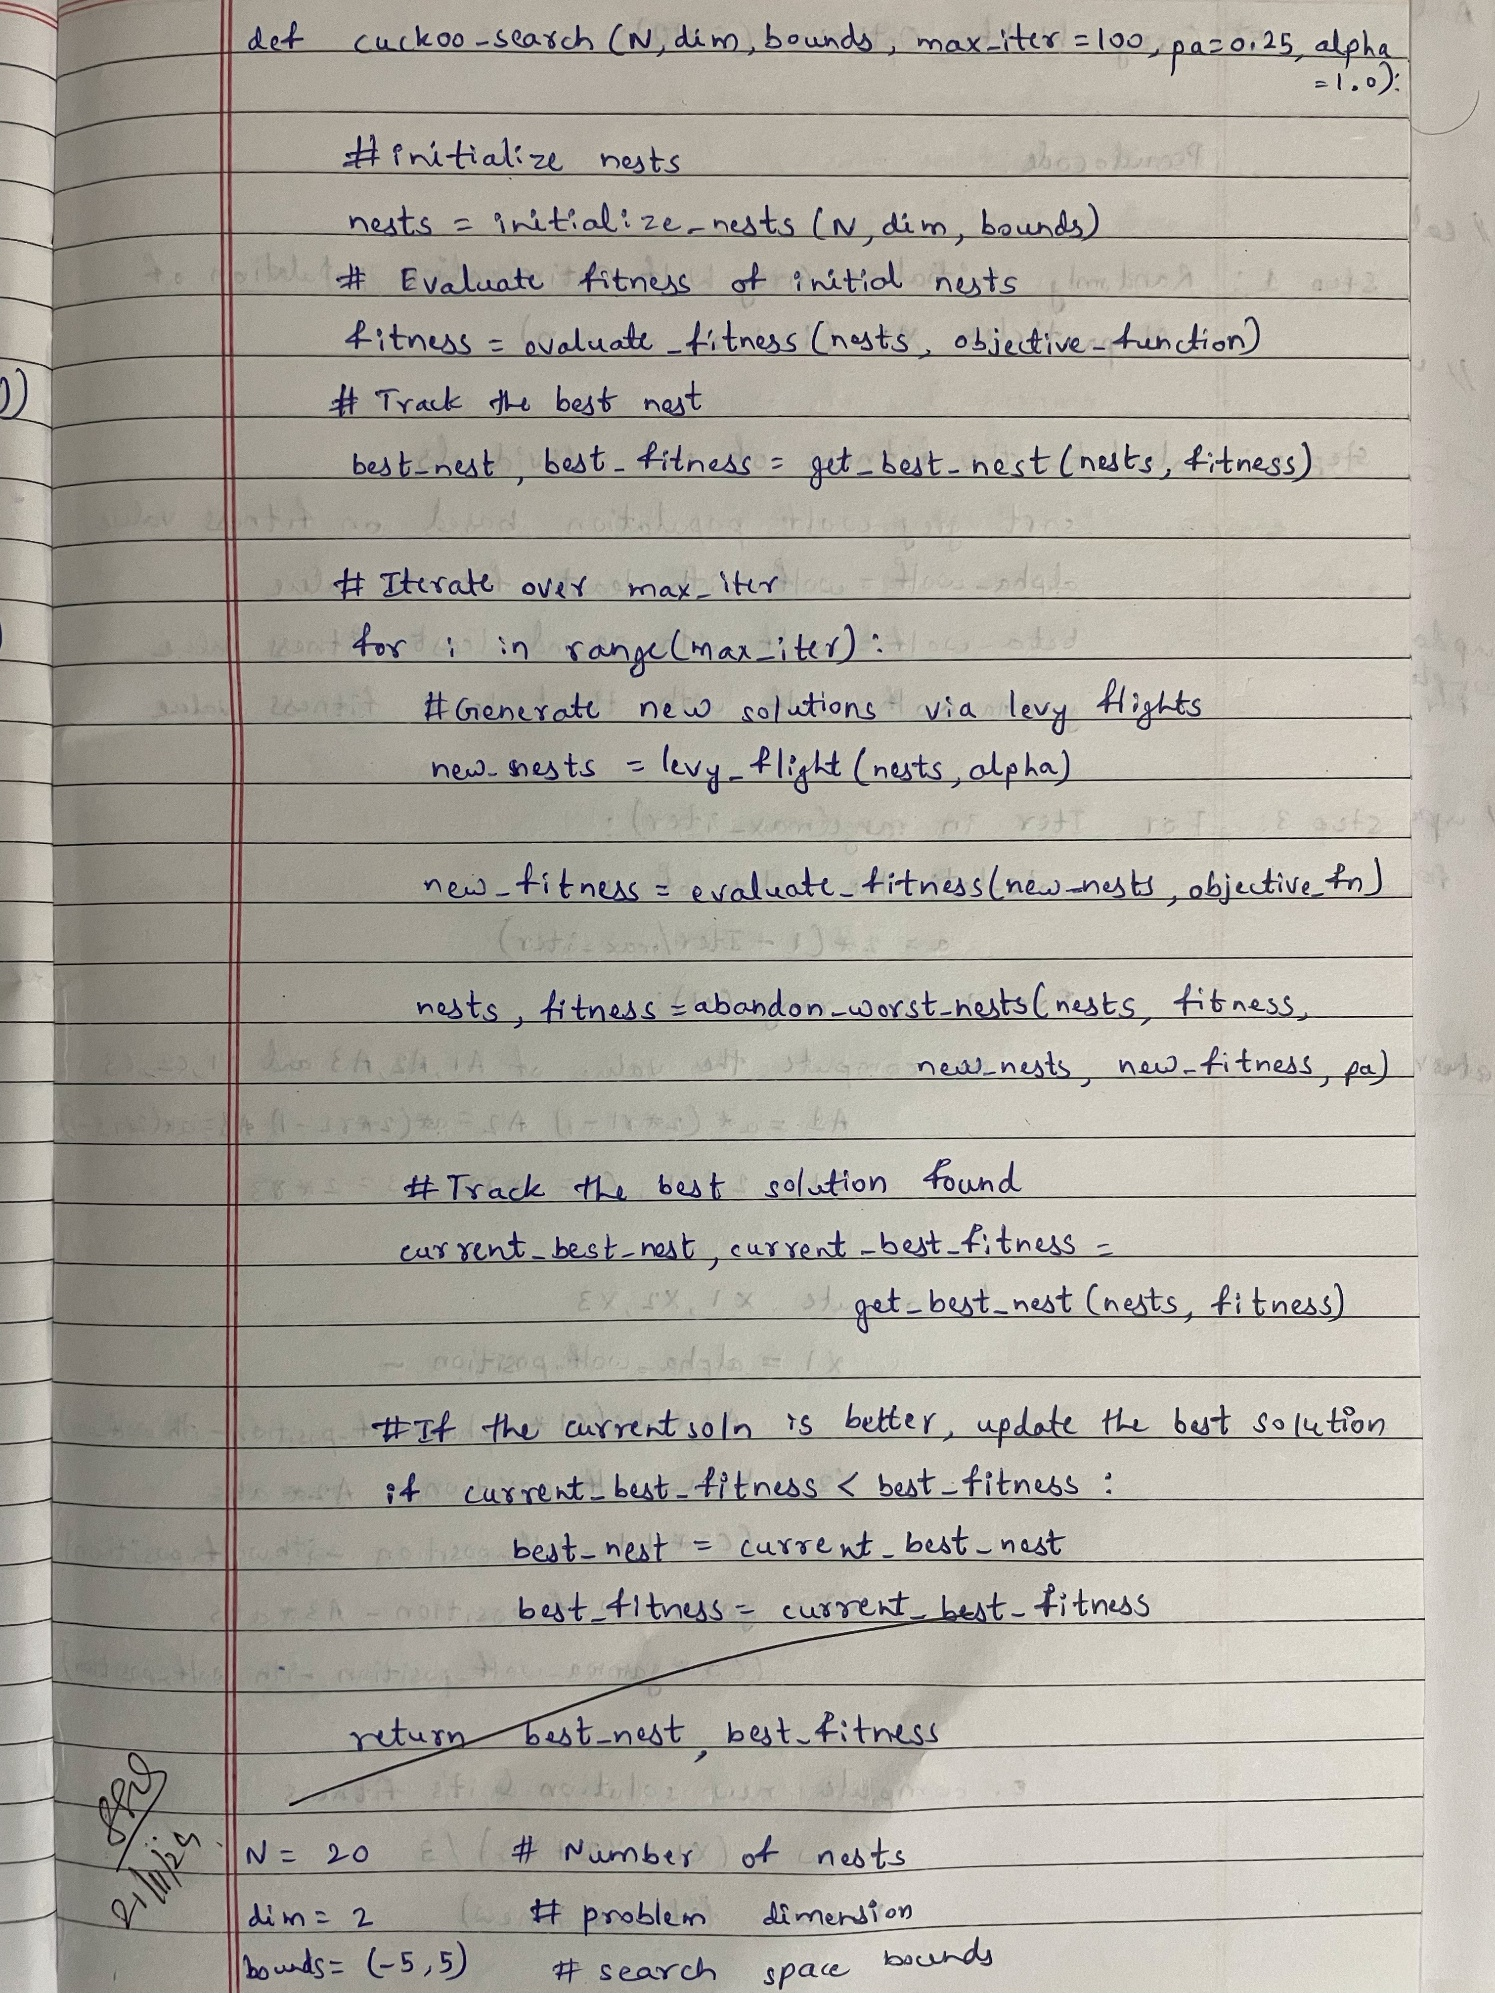 def cuckoo_search (N, dim, bounds, max_iter = 100, pa=0.25, alpha
=1.0):
# initialize nests
nests = initialize_nests (N, dim, bounds)
# Evaluate fitness of initial nests
fitness = evaluate_fitness (nests, objective_function)
# Track the best nest
best_nest, best_fitness = get_best_nest (nests, fitness)
# Iterate over max_iter
for i in range(max_iter):
# Generate new solutions via levy flights
new_nests = levy_flight (nests, alpha)
new_fitness = evaluate_fitness(new_nests, objective_fn)
nests, fitness = abandon_worst_nests( nests, fitness,
new_nests, new_fitness, pa)
# Track the best solution found
current_best_nest, current_best_fitness =
get_best_nest (nests, fitness)
# If the current soln is better, update the best solution
if current_best_fitness < best_fitness :
best_nest = current_best_nest
best_fitness = current_best_fitness
return best_nest, best_fitness
21/11/24
N = 20 # Number of nests
dim = 2 # problem dimension
bounds = (-5,5) # search space bounds